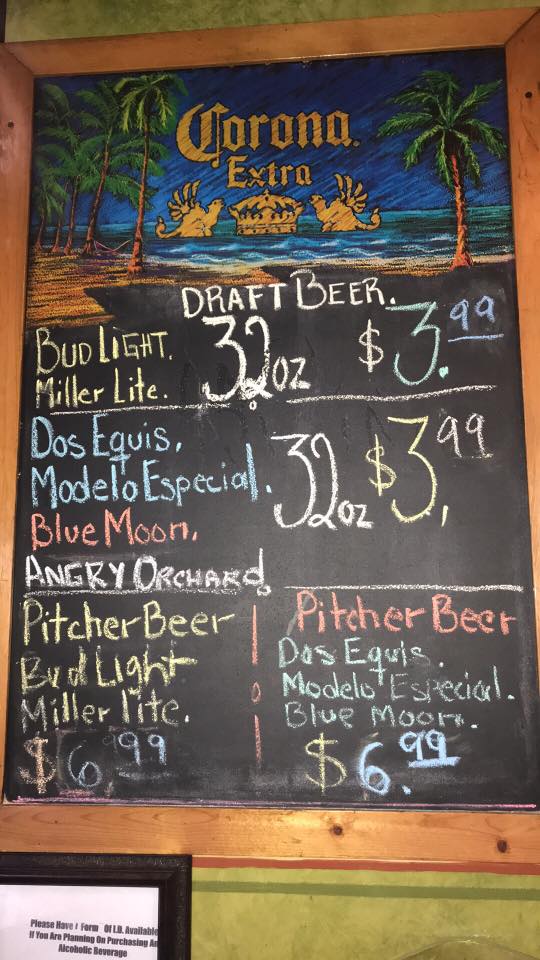 Corona
Extra
DRAFT BEER.
BUD LIGHT. 32oz $3.99
Miller Lite.
Dos Equis.
Modelo Especial. 32oz $3.99
Blue Moon.
ANGRY ORCHARD.
Pitcher Beer
Bud Light
Miller lite.
$6.99
Pitcher Beer
Dos Equis.
Modelo Especial.
Blue Moon.
$6.99
Please Have 1 Form Of I.D. Available
If You Are Planning On Purchasing An
Alcoholic Beverage